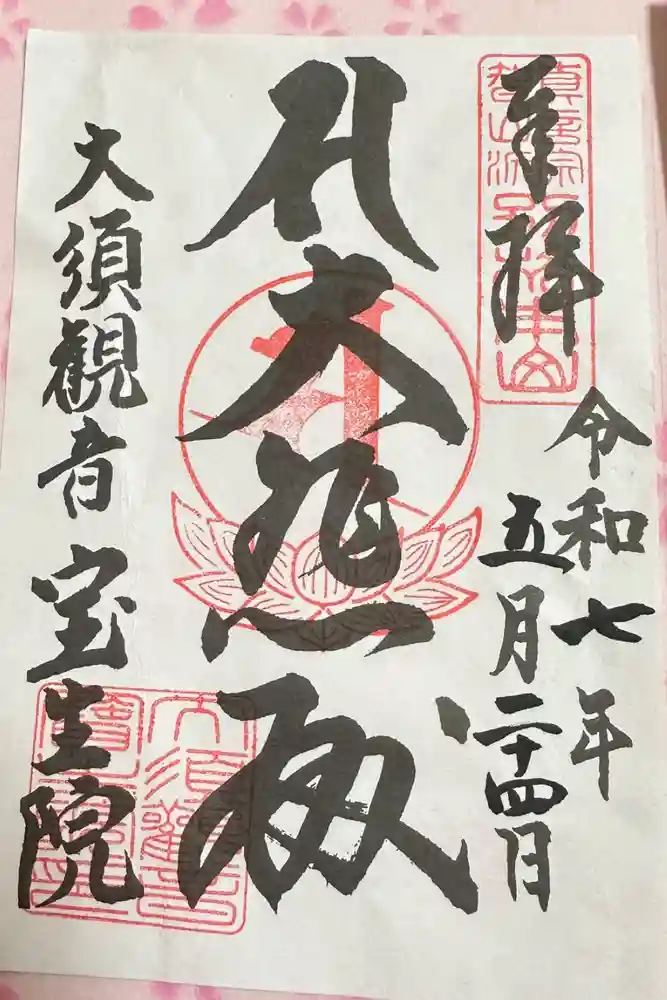 奉拝
令和七年
五月二十四日
大悲殿
大須観音 宝生院